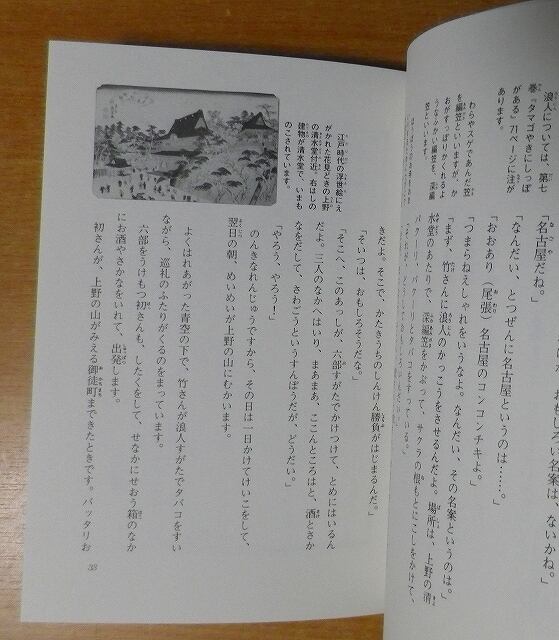 浪人については、第七
巻『タマゴやきにしっぽ
がある』71ページに注が
あります。
わらやスゲであんだ笠
を編笠といいますが、か
おがすっぽりかくれるよ
うなふかい編笠を、深編
笠といいます。
しい名案は、ないかね。」
「名古屋だね。」
「なんだい、とつぜんに名古屋というのは……。」
「おおあり（尾張）名古屋のコンコンチキよ。」
「つまらねえしゃれをいうなよ。なんだい、その名案というのは。」
「まず、竹さんに浪人のかっこうをさせるんだよ。場所は、上野の清
水堂のあたりで、深編笠をかぶって、サクラの根もとにこしをかけて、
パクーリ、パクーリとタバコをすっている。
江戸時代の浮世絵にえ
がかれた花見どきの上野
の清水堂付近。右はしの
建物が清水堂で、いまも
のこされています。
きだよ。そこで、かたきうちのしんけん勝負がはじまるんだ。」
「そいつは、おもしろそうだな。」
「そこへ、このあっしが、六部すがたでかけつけて、とめにはいるん
だよ。三人のなかへはいり、まあまあ、ここんところはと、酒とさか
なをだして、さわごうというすんぽうだが、どうだい。」
「やろう、やろう！」
のんきなれんじゅうですから、その日は一日かけてけいこをして、
翌日の朝、めいめいが上野の山にむかいます。
よくはれあがった青空の下で、竹さんが浪人すがたでタバコをすい
ながら、巡礼のふたりがくるのをまっています。
六部をうけもつ初さんも、したくをして、せなかにせおう箱のなか
にお酒やさかなをいれて、出発します。
初さんが、上野の山がみえる御徒町まできたときです。バッタリお
33